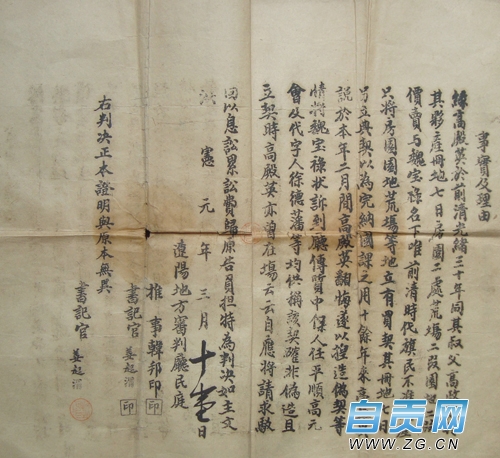 事實及理由
緣高殿英於前清光緒三十年同其叔父高
其夥產冊地七日房園二處荒塲二段園地二段
價賣与魏宝祿名下唯前清時代旗民不准
只將房園園地荒塲等地立有買契其冊地七日
另立典契以為完納國課之用十餘年來
説於本年二月間高殿英翻悔遂以捏造偽契等
情將魏宝祿狀訴到廳傳質中保人任平順高元
會及代字人徐德藩等均供稱該契確非偽造且
立契時高殿英亦曾在塲云云自應將請求駁
回以息訟累訟費歸原告負担特為判決如主文
洪憲元年三月十壹日
遼陽地方審判廳民庭
推事韓邦印 印
書記官姜起渭 印
右判決正本證明與原本無異
書記官姜起渭
自贡网
WWW.ZG.CN